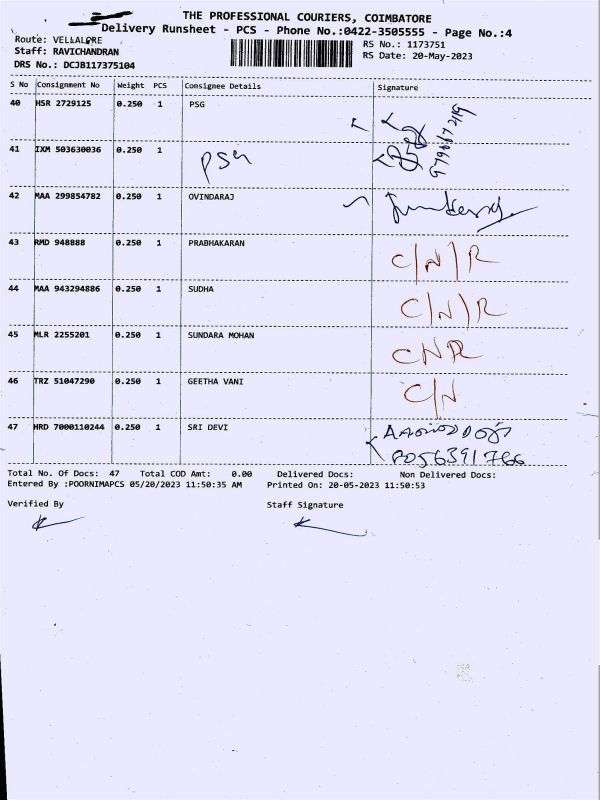 THE PROFESSIONAL COURIERS, COIMBATORE
Delivery Runsheet - PCS - Phone No.:0422-3505555 - Page No.:4
Route: VELLALORE
RS No.: 1173751
Staff: RAVICHANDRAN
RS Date: 20-May-2023
DRS No.: DCJB117375104
S No Consignment No Weight PCS Consignee Details Signature
40 HSR 2729125 0.250 1 PSG
41 IXM 503630036 0.250 1 PSG
42 MAA 299854782 0.250 1 OVINDARAJ
43 RMD 948888 0.250 1 PRABHAKARAN C/N/R
44 MAA 943294886 0.250 1 SUDHA C/N/R
45 MLR 2255201 0.250 1 SUNDARA MOHAN CNR
46 TRZ 51047290 0.250 1 GEETHA VANI C/N
47 HRD 7000110244 0.250 1 SRI DEVI
Total No. Of Docs: 47 Total COD Amt: 0.00 Delivered Docs: Non Delivered Docs:
Entered By :POORNIMAPCS 05/20/2023 11:50:35 AM Printed On: 20-05-2023 11:50:53
Verified By Staff Signature